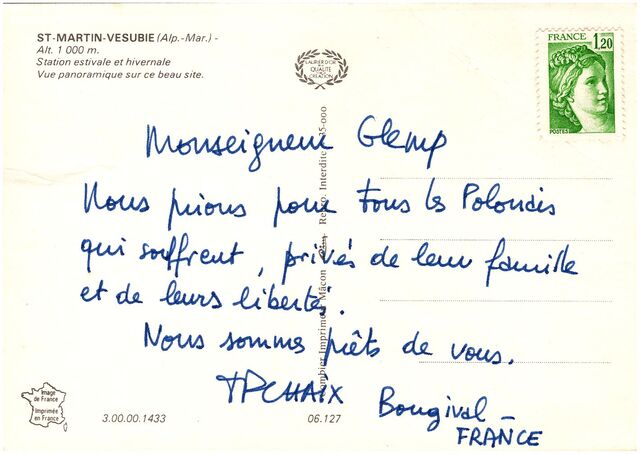 ST-MARTIN-VESUBIE (Alp.-Mar.) -
Alt. 1 000 m.
Station estivale et hivernale
Vue panoramique sur ce beau site.
LAURIER D'OR
DE LA
QUALITÉ
DE
CRÉATION
FRANCE 1,20
POSTES
Monseigneur Glemp
Nous prions pour tous les Polonais
qui souffrent, privés de leur famille
et de leurs libertés.
Nous sommes prêts de vous.
Bougival -
FRANCE
Combier Imprimeur Mâcon Repro. Interdite 35-000
Image
de France
Imprimée
en France
3.00.00.1433
06.127